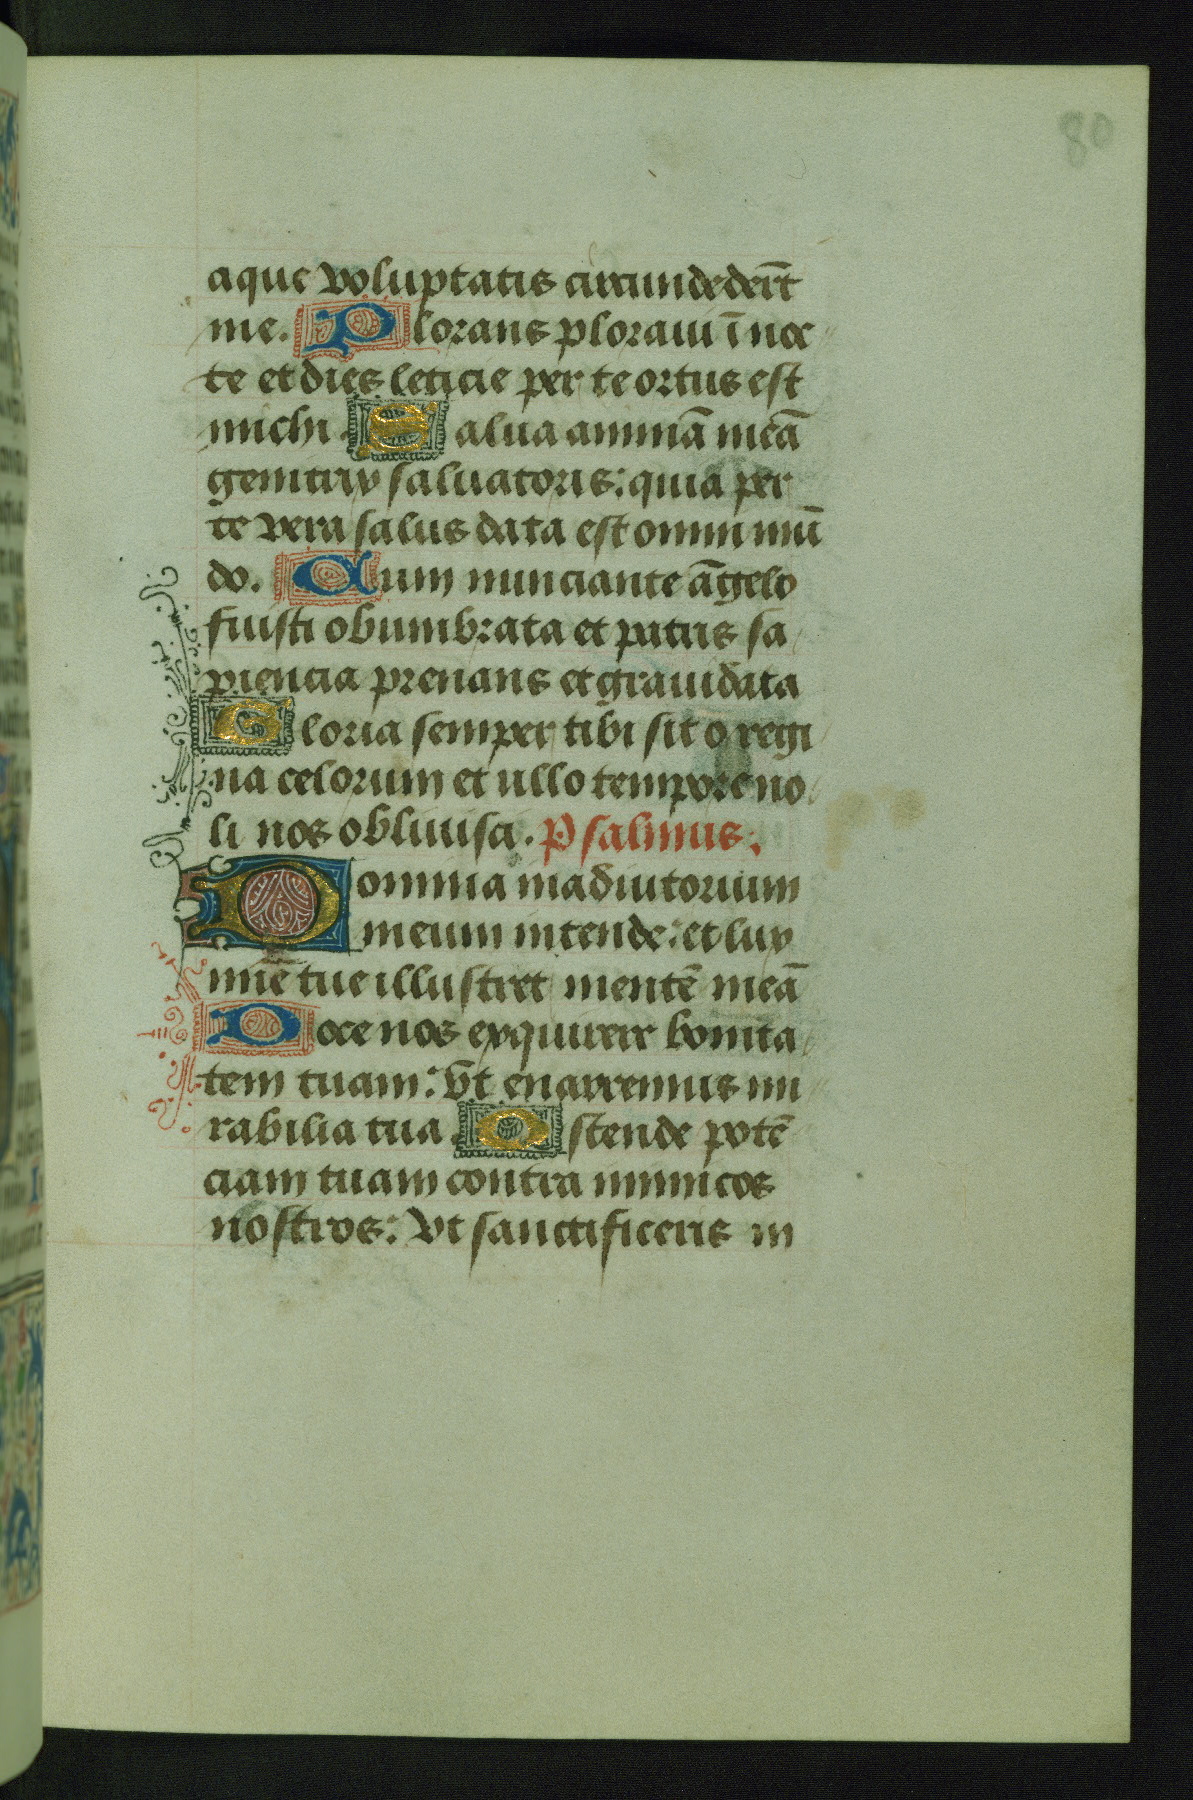 80
aque voluptatis circumdederīt
me. Plorans ploraui ī noc
te et dies leticie per te ortus est
michi. Salua animā meā
genitrix saluatoris: quia per
te vera salus data est omni mū
do. Cum nunciante āgelo
fuisti obumbrata et patris sa
piencia prenans et grauidata
Gloria semper tibi sit o regi
na celorum et ullo tempore no
li nos obliuisci. Psalmus:
Domina in adiutorium
meum intende: et lux
mīe tue illustret mentē meā
Doce nos exquirere bonita
tem tuam: vt enarremus mi
rabilia tua. Ostende potē
ciam tuam contra inimicos
nostros: Vt sanctificeris in